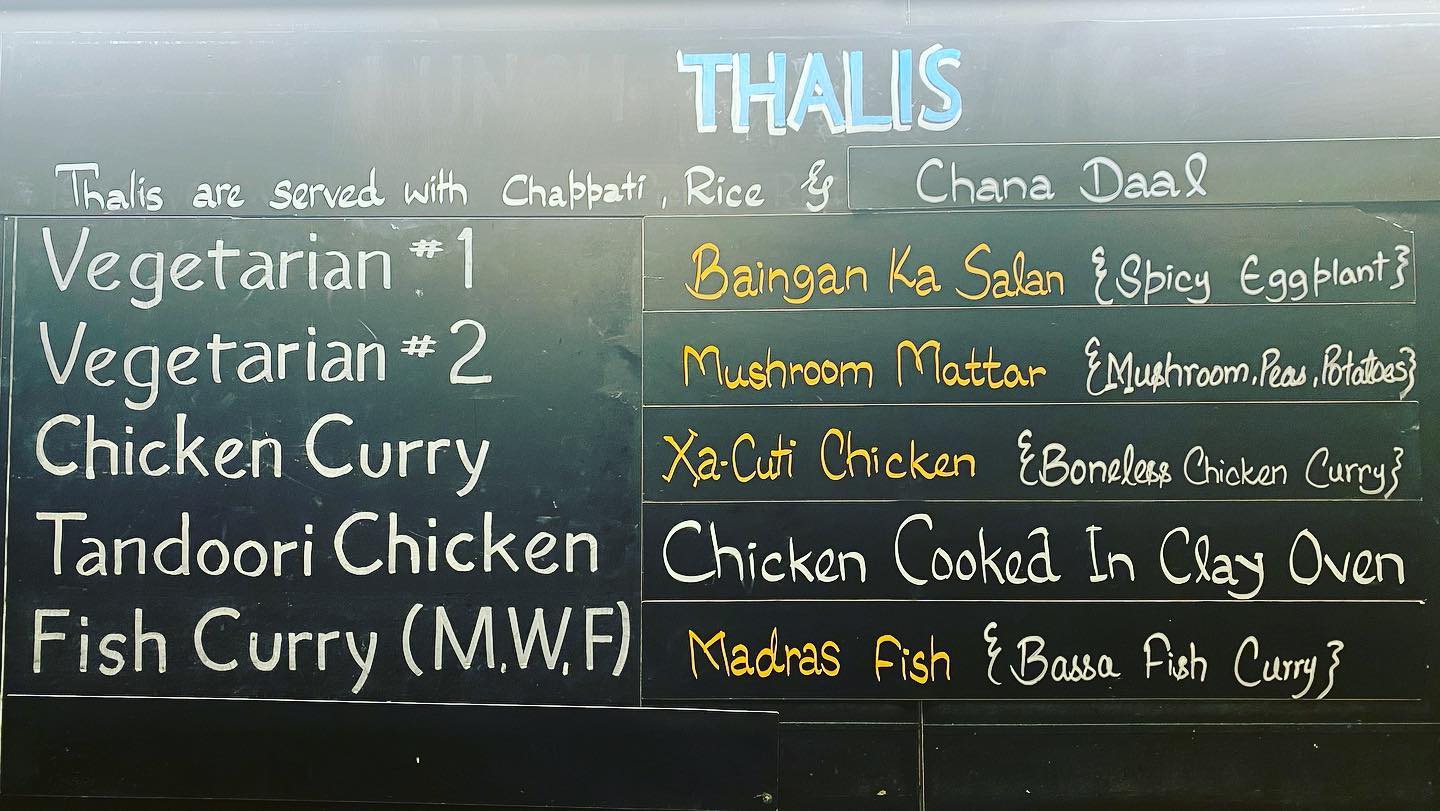 THALIS
Thalis are served with Chappati, Rice & Chana Daal
Vegetarian #1 Baingan Ka Salan {Spicy Eggplant}
Vegetarian #2 Mushroom Mattar {Mushroom, Peas, Potatoes}
Chicken Curry Xa-Cuti Chicken {Boneless Chicken Curry}
Tandoori Chicken Chicken Cooked In Clay Oven
Fish Curry (M,W,F) Madras Fish {Bassa Fish Curry}